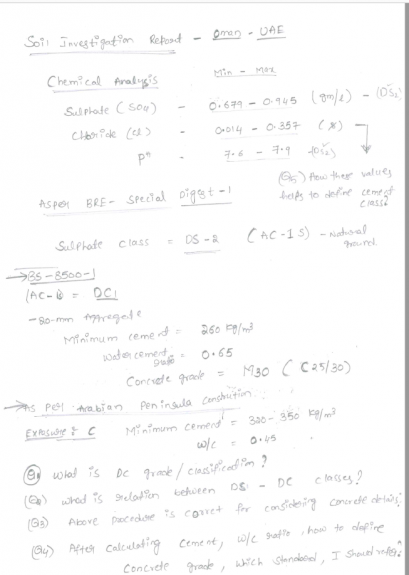 Soil Investigation Report - Oman - UAE
Chemical Analysis Min - Max
Sulphate (SO4) - 0.679 - 0.945 (gm/l) - (DS2)
Chloride (cl) - 0.014 - 0.357 (%)
pH - 7.6 - 7.9 (DS2)
(Q5) How these values
helps to define cement
class?
As per BRE - Special Digest - 1
Sulphate class = DS-2 (AC-1S) - Natural
ground.
BS-8500-1
= DC1
-20-mm Aggregate
Minimum cement = 260 kg/m3
Water cement ratio = 0.65
Concrete grade = M30 (C25/30)
As per Arabian Peninsula Constrution
Exposure: C Minimum cement = 320 - 350 kg/m3
w/c = 0.45
what is DC grade/classification?
(Q2) what is relation between DS - DC classes?
(Q3) Above procedure is corret for considering concrete details?
(Q4) After calculating cement, w/c ratio, how to define
concrete grade, which standard, I should refer?